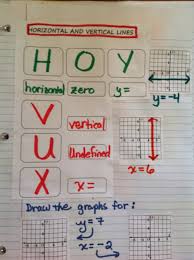 HORIZONTAL AND VERTICAL LINES
H O Y
horizontal zero y=
y=-4
V vertical
U Undefined
X x=
x=6
Draw the graphs for:
y=7
x=-2